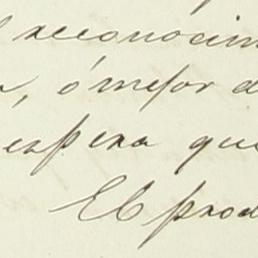 reconocim
, ó mejor d
espera que
El prod